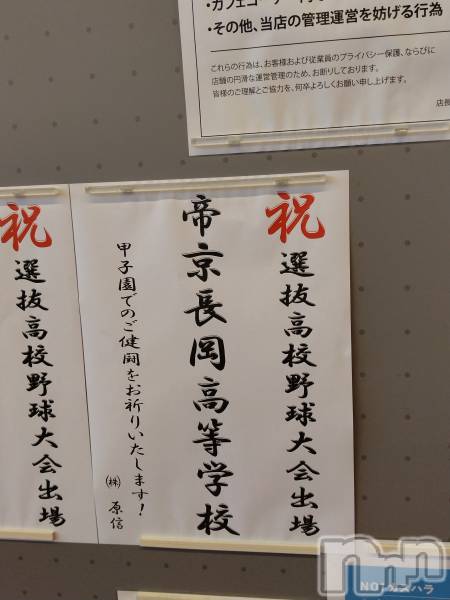 ・その他、当店の管理運営を妨げる行為
これらの行為は、お客様および従業員のプライバシー保護、ならびに
店舗の円滑な運営管理のため、お断りしております。
皆様のご理解とご協力を、何卒よろしくお願い申し上げます。
店長
祝 選抜高校野球大会出場
帝京長岡高等学校
甲子園でのご健闘をお祈りいたします!
㈱ 原信
祝 選抜高校野球大会出場